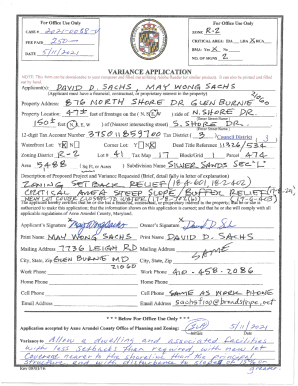 For Office Use Only
CASE # 2021-0088-V
FEE PAID 250-
DATE 5/11/2021
For Office Use Only
ZONE R-2
CRITICAL AREA: IDA LDA X RCA
BMA: Yes X No
NO. OF SIGNS 2
VARIANCE APPLICATION
Applicant(s): DAVID D. SACHS, MAY WONG SACHS
(Applicant must have a financial, contractual, or proprietary interest in the property)
Property Address: 876 NORTH SHORE DR GLEN BURNIE 21060
Property Location: 47± feet of frontage on the (N, side of N. SHORE DR.
150± feet of (Nearest intersecting street) S. SHORE DR.
12-digit Tax Account Number 375001859700 Tax District 3 Council District
Waterfront Lot: Corner Lot: Deed Title Reference 11326/534
Zoning District R-2 Lot # 41 Tax Map 17 Block/Grid Parcel 474
Area 5488 (sq ft or Acres) Subdivision Name SILVER SANDS SEC "L"
Description of Proposed Project and Variance Requested (Brief, detail fully in letter of explanation)
ZONING SETBACK RELIEF (18-4-601, 18-2-402)
CRITICAL AREA STEEP SLOPE/BUFFER RELIEF
The applicant hereby certifies that he or she has a financial, contractual, or proprietary interest in the property; that he or she is
authorized to make this application; that the information shown on this application is correct; and that he or she will comply with all
applicable regulations of Anne Arundel County, Maryland.
Applicant's Signature Applicant's Signature
Print Name MAY WONG SACHS Print Name DAVID D. SACHS
Mailing Address 7736 LEIGH RD Mailing Address SAME
City, State, Zip GLEN BURNIE MD City, State, Zip
21060
Work Phone Work Phone 410-458-2086
Home Phone Home Phone
Cell Phone Cell Phone SAME AS WORK PHONE
Email Address Email Address
*** Below For Office Use Only ***
Application accepted by Anne Arundel County Office of Planning and Zoning: 5/11/2021
Initials Date
Variance to Allow a dwelling and associated facilities
with less setbacks than required, with new lot
coverage nearer to the shoreline than the principal
structure and with disturbance to slopes of 15% or
greater